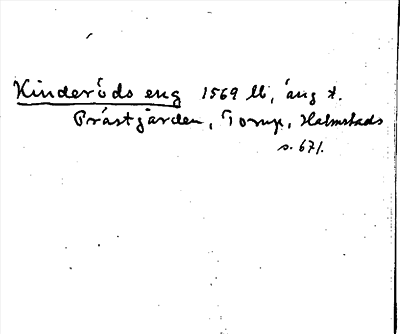 Kinderöds eng 1569 lb, äng t.
Prästgården, Torup, Halmstads
s. 671.